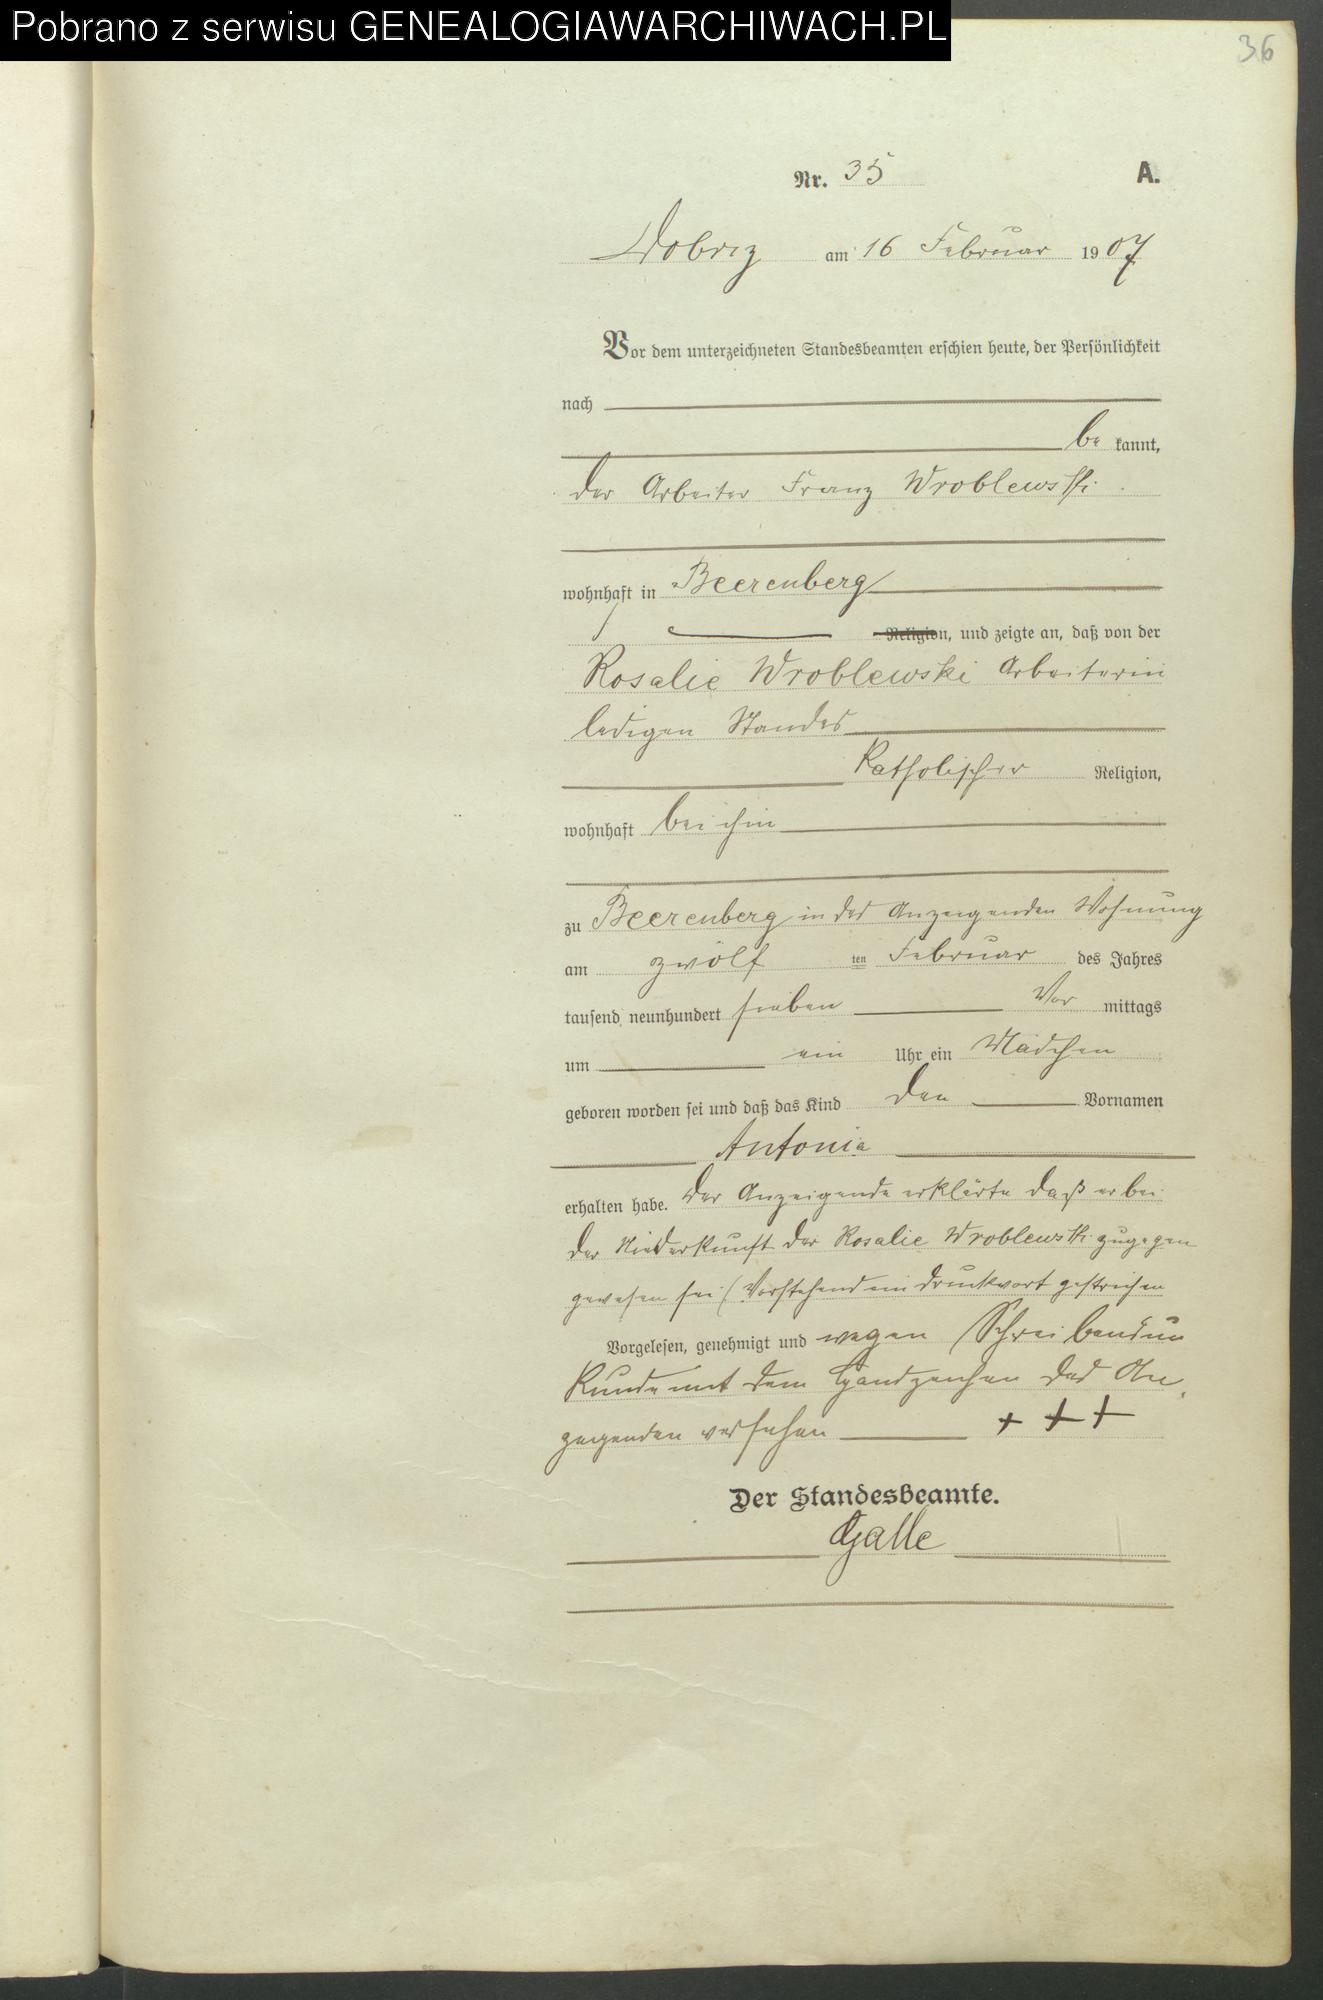 Pobrano z serwisu GENEALOGIAWARCHIWACH.PL
36
Nr. 35 A.
Dobrcz am 16 Februar 1907
Vor dem unterzeichneten Standesbeamten erschien heute, der Persönlichkeit
nach
be kannt,
der Arbeiter Franz Wroblewski
wohnhaft in Beerenberg
Religion, und zeigte an, daß von der
Rosalie Wroblewski Arbeiterin
ledigen Standes
Katholischer Religion,
wohnhaft bei ihm
zu Beerenberg in des Anzeigenden Wohnung
am zwölf ten Februar des Jahres
tausend neunhundert sieben Vor mittags
um ein Uhr ein Mädchen
geboren worden sei und daß das Kind den Vornamen
Antonia
erhalten habe. Der Anzeigende erklärte daß er bei
der Niederkunft der Rosalie Wroblewski zugegen
gewesen sei (Vorstehend ein Druckwort gestrichen
Vorgelesen, genehmigt und wegen Schreibensun
kunde mit dem Handzeichen des An
zeigenden versehen + + +
Der Standesbeamte.
Galle